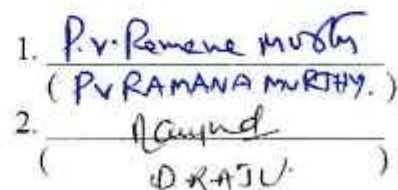 1. P.V. Ramana Murthy
( PV RAMANA MURTHY. )
2.
( D RAJU )